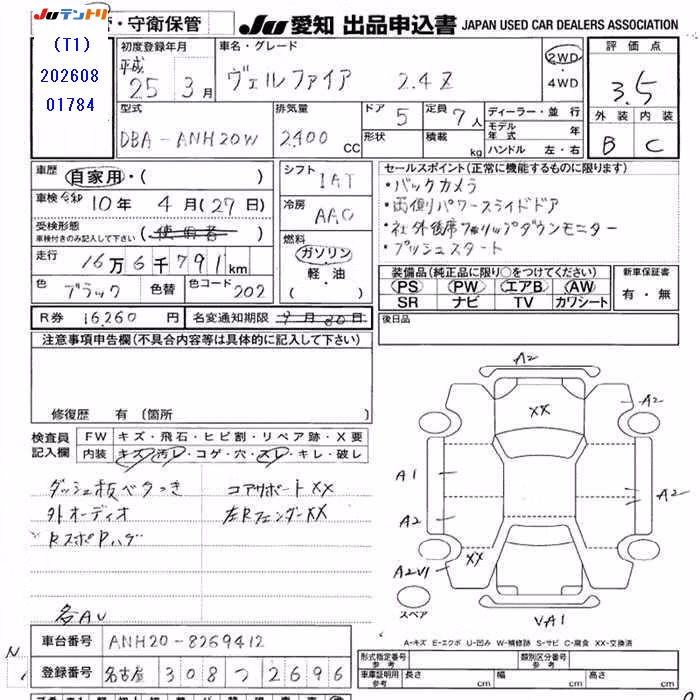 JUテントリ
・守衛保管
JU 愛知 出品申込書 JAPAN USED CAR DEALERS ASSOCIATION
(T1)
202608
01784
初度登録年月
平成 25 3月
車名・グレード
ヴェルファイア 2.4Z
2WD
・
4WD
評価点
3.5
外装 内装
B C
型式
DBA-ANH20W
排気量
2400 CC
ドア 5
形状
定員 7人
積載 kg
ディーラー・並行
モデル年式 年
ハンドル 左・右
車歴 自家用・( )
車検 令和 10年 4月(27日)
受検形態
車検付きのみ記入して下さい (使用者)
走行 16万6千791km
色 ブラック 色替 色コード 202
シフト IAT
冷房 AAC
燃料
ガソリン
・
軽・油
( )
セールスポイント(正常に機能するものに限ります)
・バックカメラ
・両側パワースライドドア
・社外後席フリップダウンモニター
・プッシュスタート
装備品(純正品に限り○をつけてください)
PS PW エアB AW
SR ナビ TV カワシート
新車保証書
有・無
R券 16,260円 名変通知期限 9月30日
後日品
注意事項申告欄(不具合内容等は具体的に記入して下さい)
修復歴 有(箇所
検査員
記入欄
FW キズ・飛石・ヒビ割・リペア跡・X要
内装 キズ・汚レ・コゲ・穴・スレ・キレ・破レ
ダッシュ板ベタつき コアサポートXX
外オーディオ 左RフェンダーXX
RスポPハゲ
各AU
A2
XX
A2
A1
A2
A2
XX
A2V1
スペア
VA1
A-キズ E-エクボ U-凹み W-補修跡 S-サビ C-腐食 XX-交換済
N
車台番号 ANH20-8269412
登録番号 名古屋 308 つ 2696
形式指定番号
参考
類別区分番号
参考
車庫証明用
参考
長さ cm 幅 cm 高さ cm